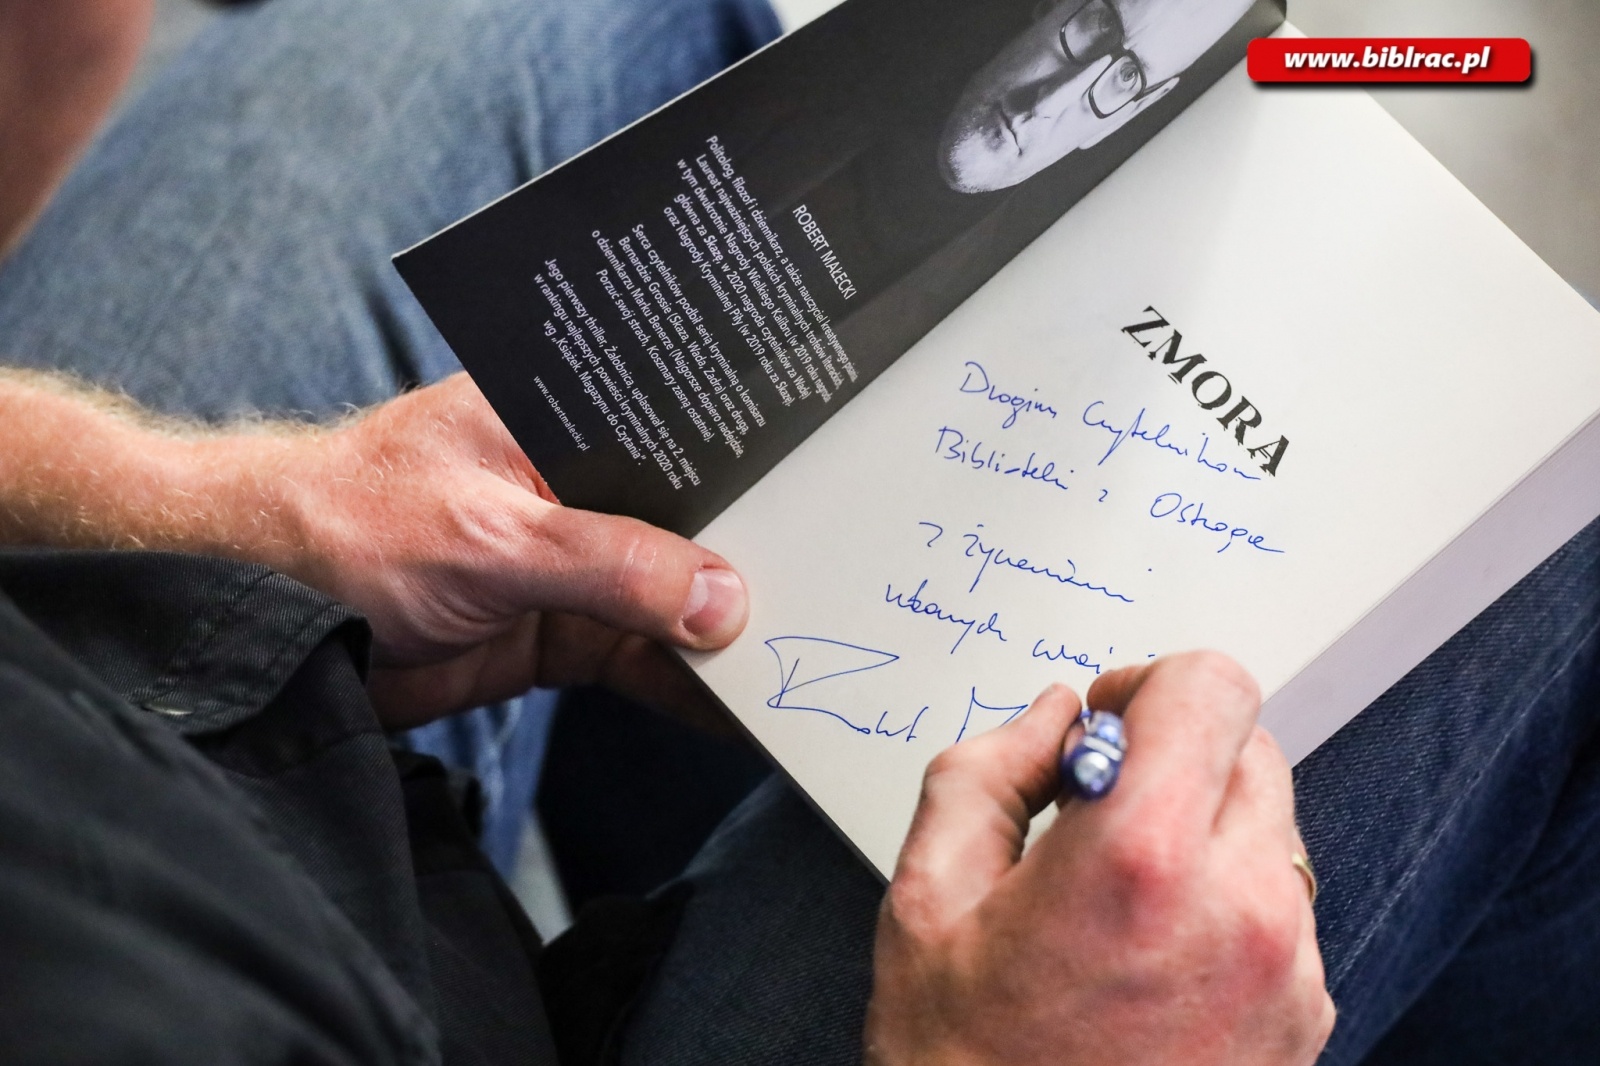 www.biblrac.pl
ROBERT MAŁECKI
Politolog, filozof i dziennikarz, a także nauczyciel kreatywnego pisania.
Laureat najważniejszych polskich kryminalnych trofeów literackich,
w tym dwukrotnie Nagrody Wielkiego Kalibru (w 2019 roku nagroda
główna za Skazę, w 2020 nagroda czytelników za Wadę)
oraz Nagrody Kryminalnej Piły (w 2019 roku za Skazę).
Serca czytelników podbił serią kryminalną o komisarzu
Bernardzie Grossie (Skaza, Wada, Zadra) oraz drugą,
o dziennikarzu Marku Benerze (Najgorsze dopiero nadejdzie,
Porzuć swój strach, Koszmary zasną ostatnie).
Jego pierwszy thriller, Żałobnica, uplasował się na 2. miejscu
w rankingu najlepszych powieści kryminalnych 2020 roku
wg „Książek. Magazynu do Czytania".
www.robertmalecki.pl
ZMORA
Drogim Czytelnikom
Biblioteki z Ostroga
z życzeniami
udanych wraż
Robert M